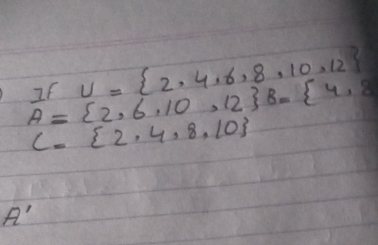 ) If U = { 2, 4, 6, 8, 10, 12 }
A = { 2, 6, 10 , 12 } B = { 4, 8
C = { 2, 4, 8, 10 }
A'